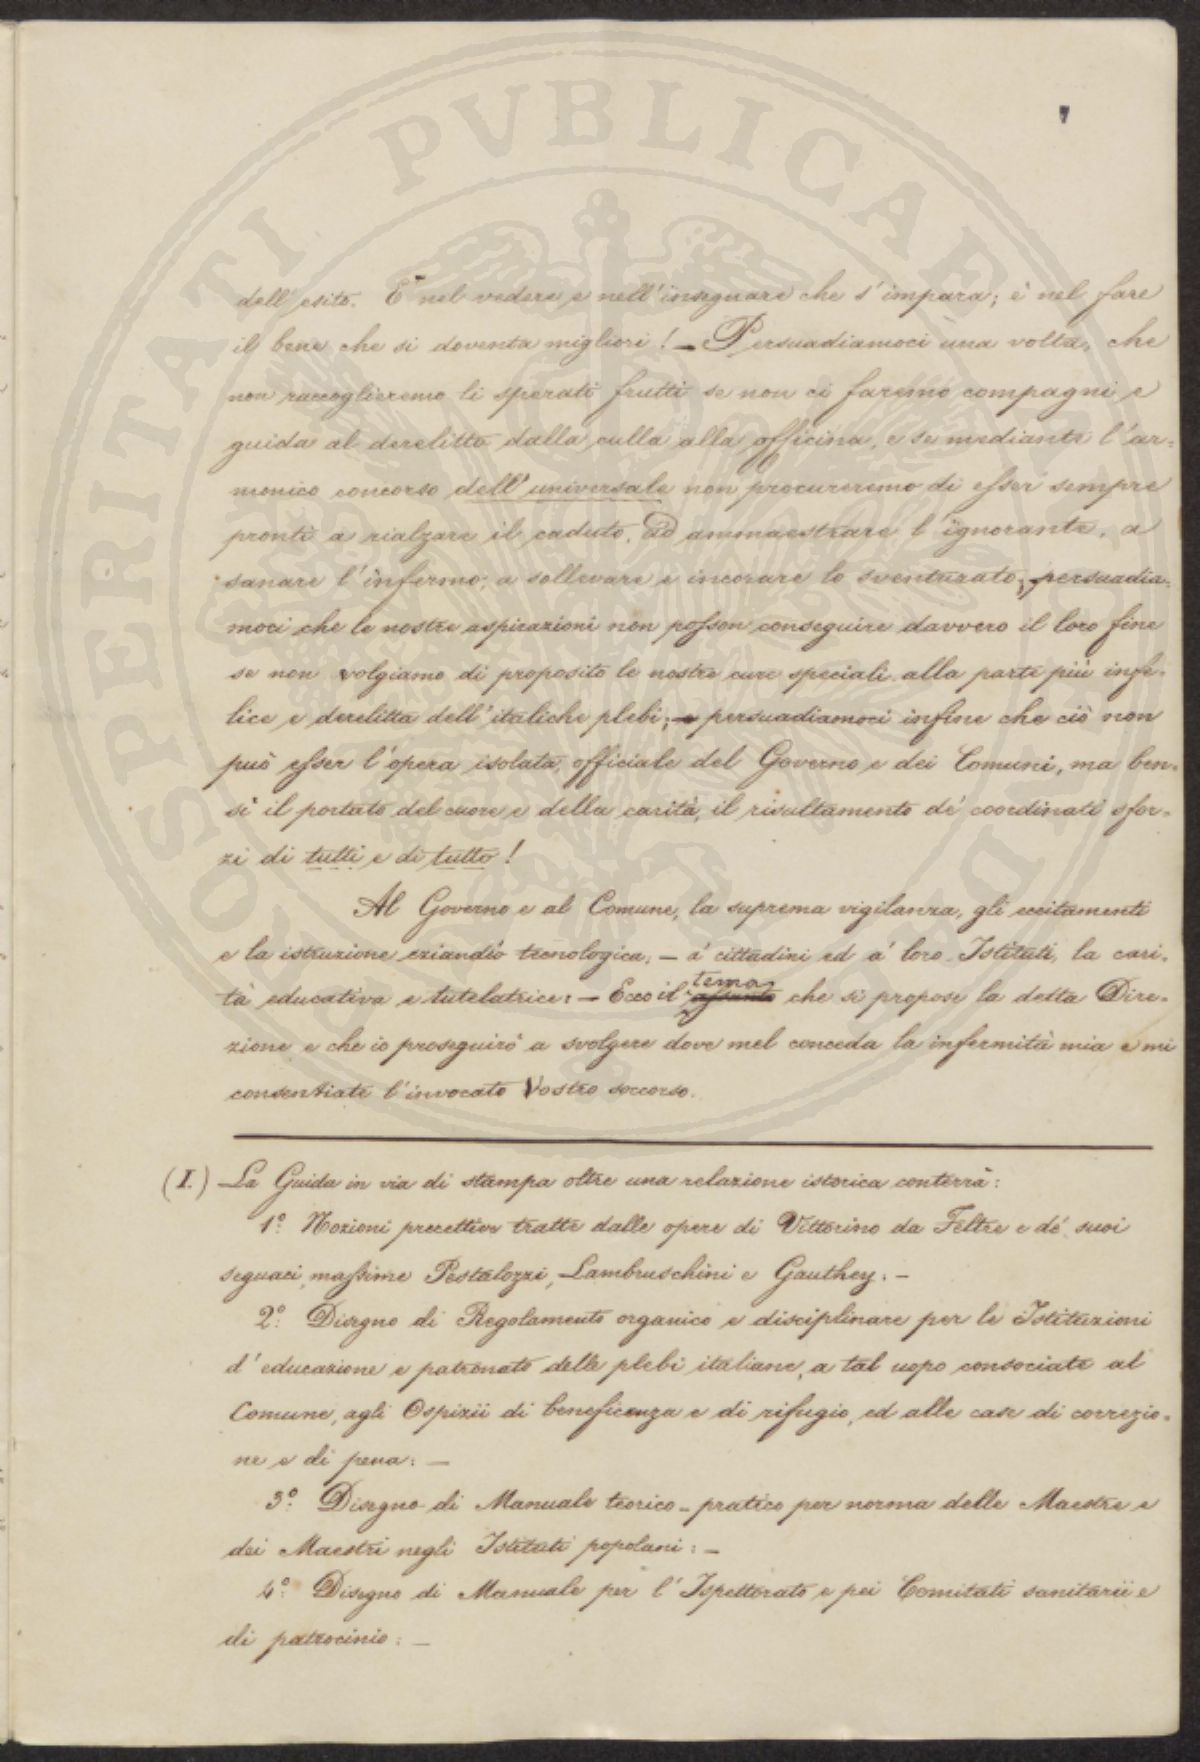 7
dell'esito. È nel vedere e nell'insegnare che s'impara; è nel fare
il bene che si doventa migliori! – Persuadiamoci una volta, che
non raccoglieremo li sperati frutti se non ci faremo compagni e
guida al derelitto dalla culla alla officina, e se mediante l'ar=
monico concorso dell'universale non procureremo di esser sempre
pronti a rialzare il caduto, ad ammaestrare l'ignorante, a
sanare l'infermo, a sollevare e incorare lo sventurato; persuadia=
moci che le nostre aspirazioni non posson conseguire davvero il loro fine
se non volgiamo di proposito le nostre cure speciali alla parte più infe=
lice e derelitta dell'italiche plebi; e persuadiamoci infine che ciò non
può esser l'opera isolata, officiale del Governo e dei Comuni, ma ben=
sì il portato del cuore e della carità, il risultamento de' coordinati sfor=
zi di tutti e di tutto!
Al Governo e al Comune, la suprema vigilanza, gli eccitamenti
e la istruzione eziandio tecnologica; – a' cittadini ed a' loro Istituti, la cari=
tà educativa e tutelatrice: – Ecco il tema che si propose la detta Dire=
zione e che io proseguirò a svolgere dove mel conceda la infermità mia e mi
consentiate l'invocato Vostro soccorso.
(I.) La Guida in via di stampa oltre una relazione istorica conterrà:
1.° Nozioni precettive tratte dalle opere di Vittorino da Feltre e de' suoi
seguaci, massime Pestalozzi, Lambruschini e Gauthey: –
2.° Disegno di Regolamento organico e disciplinare per le Istituzioni
d'educazione e patronato delle plebi italiane, a tal uopo consociate al
Comune, agli Ospizii di beneficenza e di rifugio, ed alle case di correzio=
ne e di pena: –
3.° Disegno di Manuale teorico-pratico per norma delle Maestre e
dei Maestri negli Istituti popolani: –
4.° Disegno di Manuale per l'Ispettorato e pei Comitati sanitarii e
di patrocinio: –
PROSPERITATI PVBLICAE